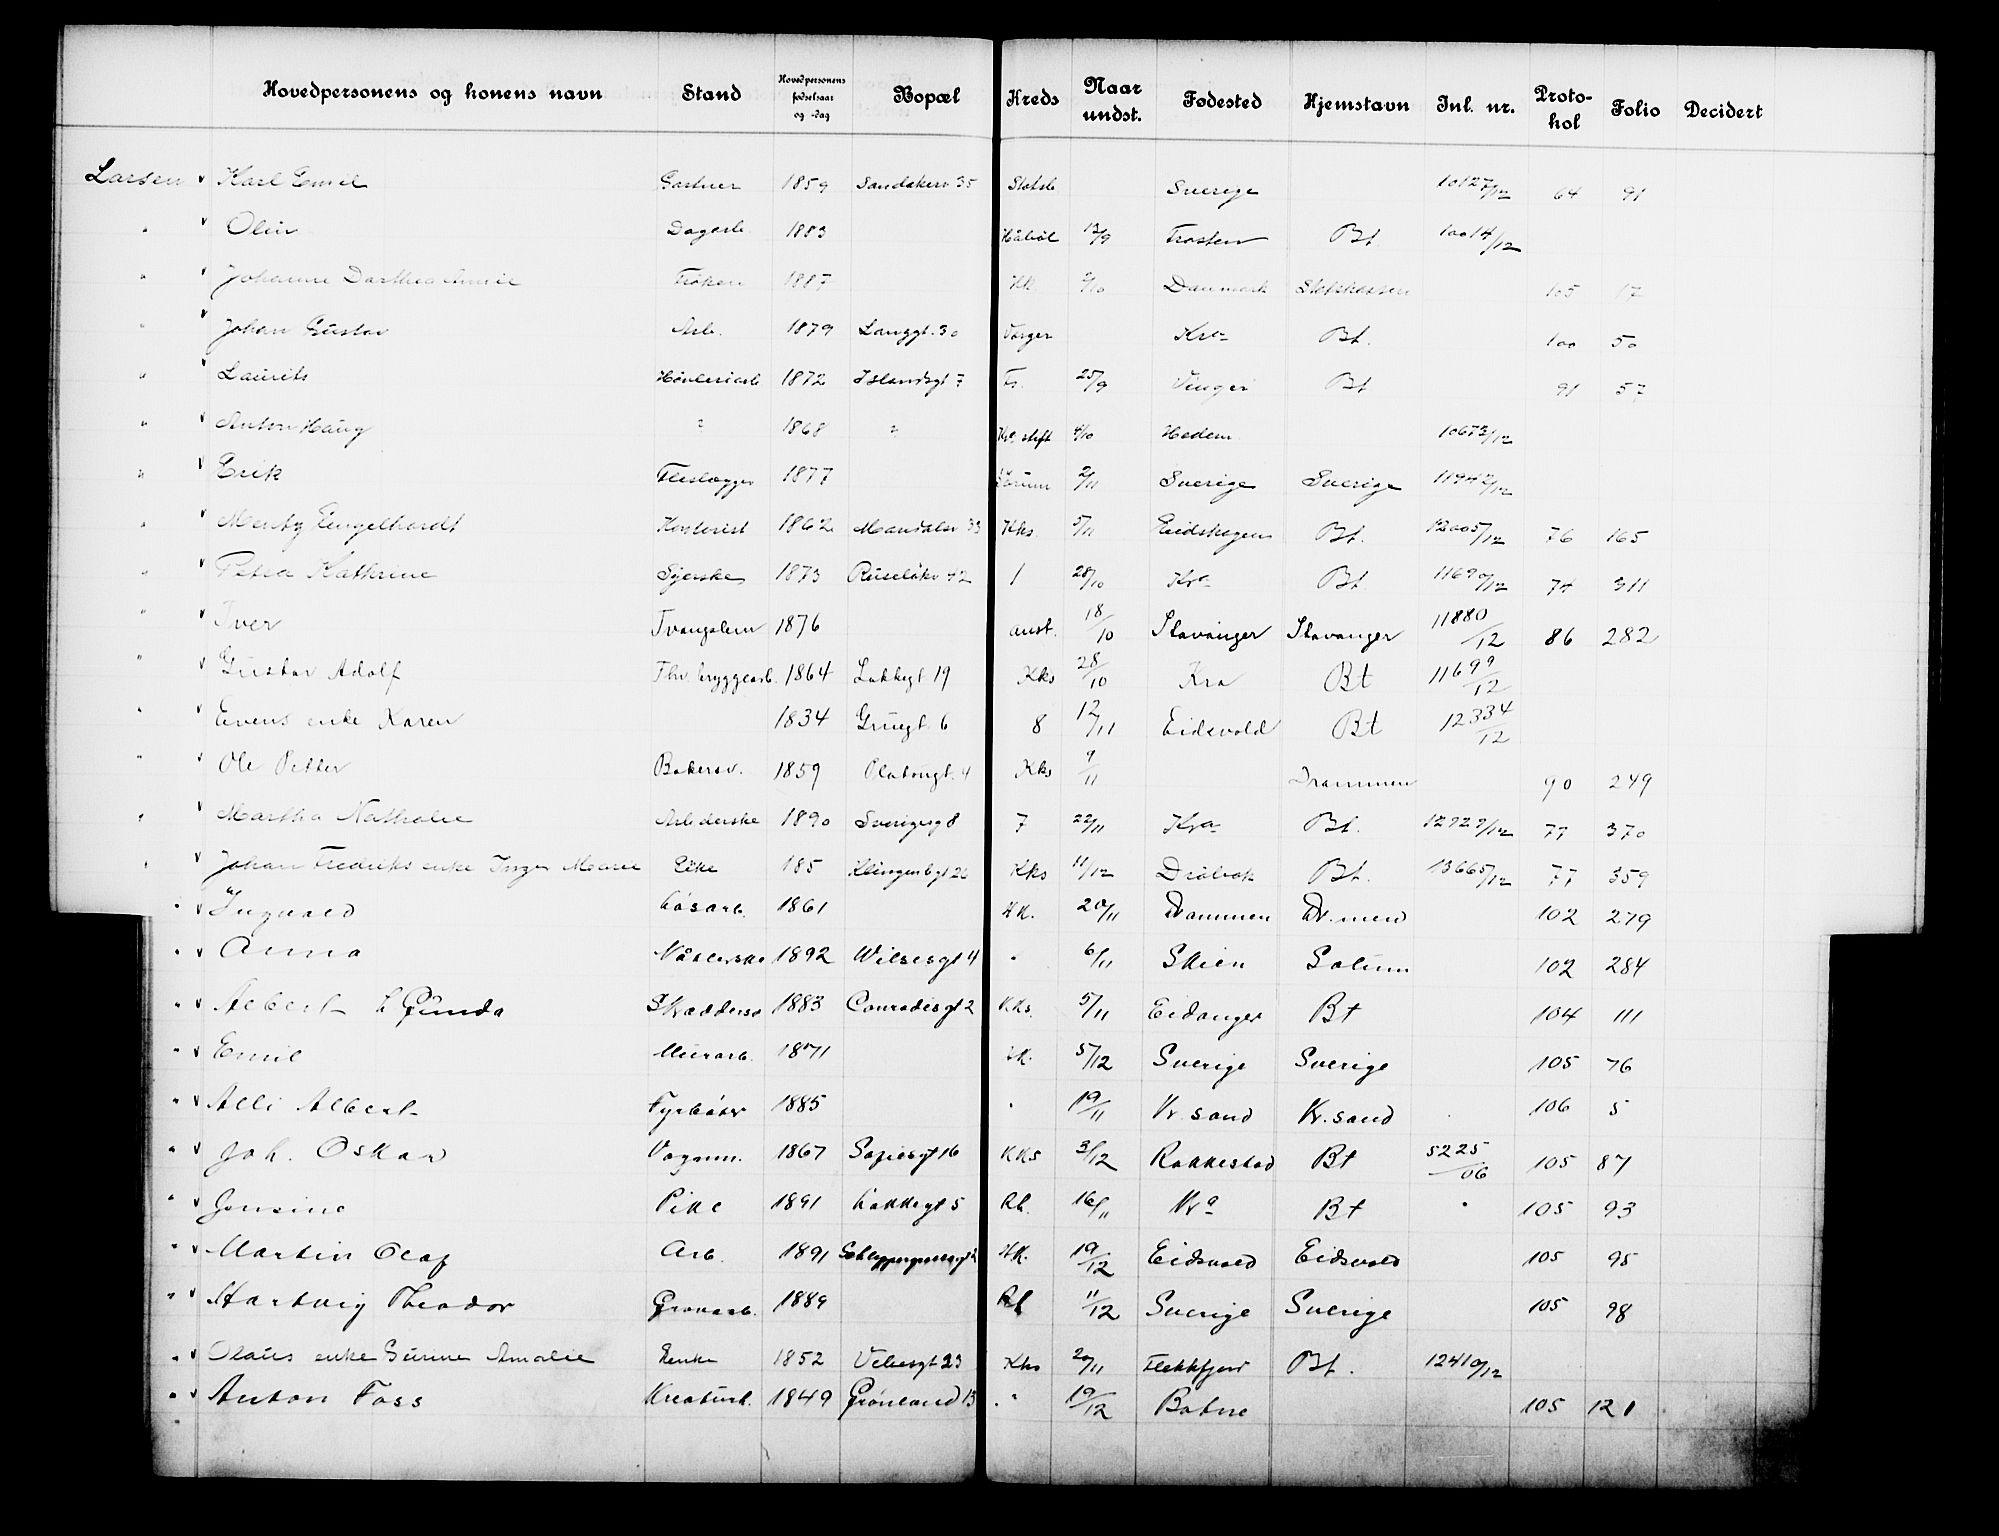 Hovedpersonens og konens navn Stand Hovedpersonens fødselsaar og -dag Bopæl Kreds Naar undst. Fødested Hjemstavn Inl. nr. Proto-kol Folio Decidert
Larsen v Karl Emil Gartner 1859 Sandakerv 35 Sverige 10127/12 64 91
" v Olin Dagarb 1883 12/9 Trøsten Bt. 10014/12
" v Johanne Darthea Amalie Frøken 1887 Kk 2/10 Danmark Statskassen 105 17
" v Johan Gustav Arb. 1879 Langgt. 30 Varger Kra Bt. 100 50
" v Laurits Høvleriarb 1872 Islandsgt 7 Fr. 25/9 Vinger Bt 91 57
" v Anton Haug " 1868 " Kra stift 4/10 Hedem 10673/12
" v Erik Fleslægger 1877 Sørum 2/11 Sverige Sverige 11942/12
" v Mentz Engelhardt Kontorist 1862 Mandalsv 33 Kks. 5/11 Eidskogen Bt. 12005/12 76 165
" v Petra Kathrine Syerske 1873 Ruseløkv 42 1 28/10 Kra Bt. 11690/12 74 311
" v Iver Tvangslem 1876 anst. 18/10 Stavanger Stavanger 11880/12 86 282
" v Gustav Adolf Thv. bryggearb. 1864 Lakkegt 19 Kks 28/10 Kra Bt 11699/12
" v Evens enke Karen 1834 Gruegt. 6 8 12/11 Eidsvold Bt 12334/12
" v Ole Petter Bakersv. 1859 Platougt. 4 Kks 9/11 Drammen 90 249
" v Martha Nathalie Arbederske 1890 Sverigesg 8 7 22/11 Kra Bt. 12929/12 77 370
" v Johan Fredriks enke Inger Marie Enke 185 Klingenbgt 26 Kks 11/12 Drøbak Bt. 13665/12 77 359
" v Ingvald Løsarb. 1861 HK. 20/11 Drammen Dr.men 102 279
" v Anna Nåtlerske 1892 Wilsesgt 4 " 6/11 Skien Solum 102 284
" v Albert h Gunda Skræddersv 1883 Conradisgt 2 KKs. 5/11 Eidanger Bt 104 111
" v Emil Murarb. 1871 HK. 5/12 Sverige Sverige 105 76
" v Alli Albert Fyrbøter 1885 " 19/11 Kr. sand Kr. sand 106 5
" v Joh. Oskar Vognm. 1867 Sofiesgt 16 KKs 3/12 Rakkestad Bt 5225/06 105 87
" v Jensine Pike 1891 Lakkegt 5 Rb. 16/11 Kra Bt " 105 93
" v Martin Olaf Arb. 1891 HK. 19/12 Eidsvold Eidsvold 105 95
" v Hartvig Theodor Grovarb. 1889 Rb 11/12 Sverige Sverige 105 98
" v Olaus enke Gurine Amalie Enke 1852 Vibesgt 23 Kks 20/11 Flekkfjord Bt. 12410/12
" v Anton Foss Kreaturh. 1849 Grønland 13 " 19/12 Botne 105 121